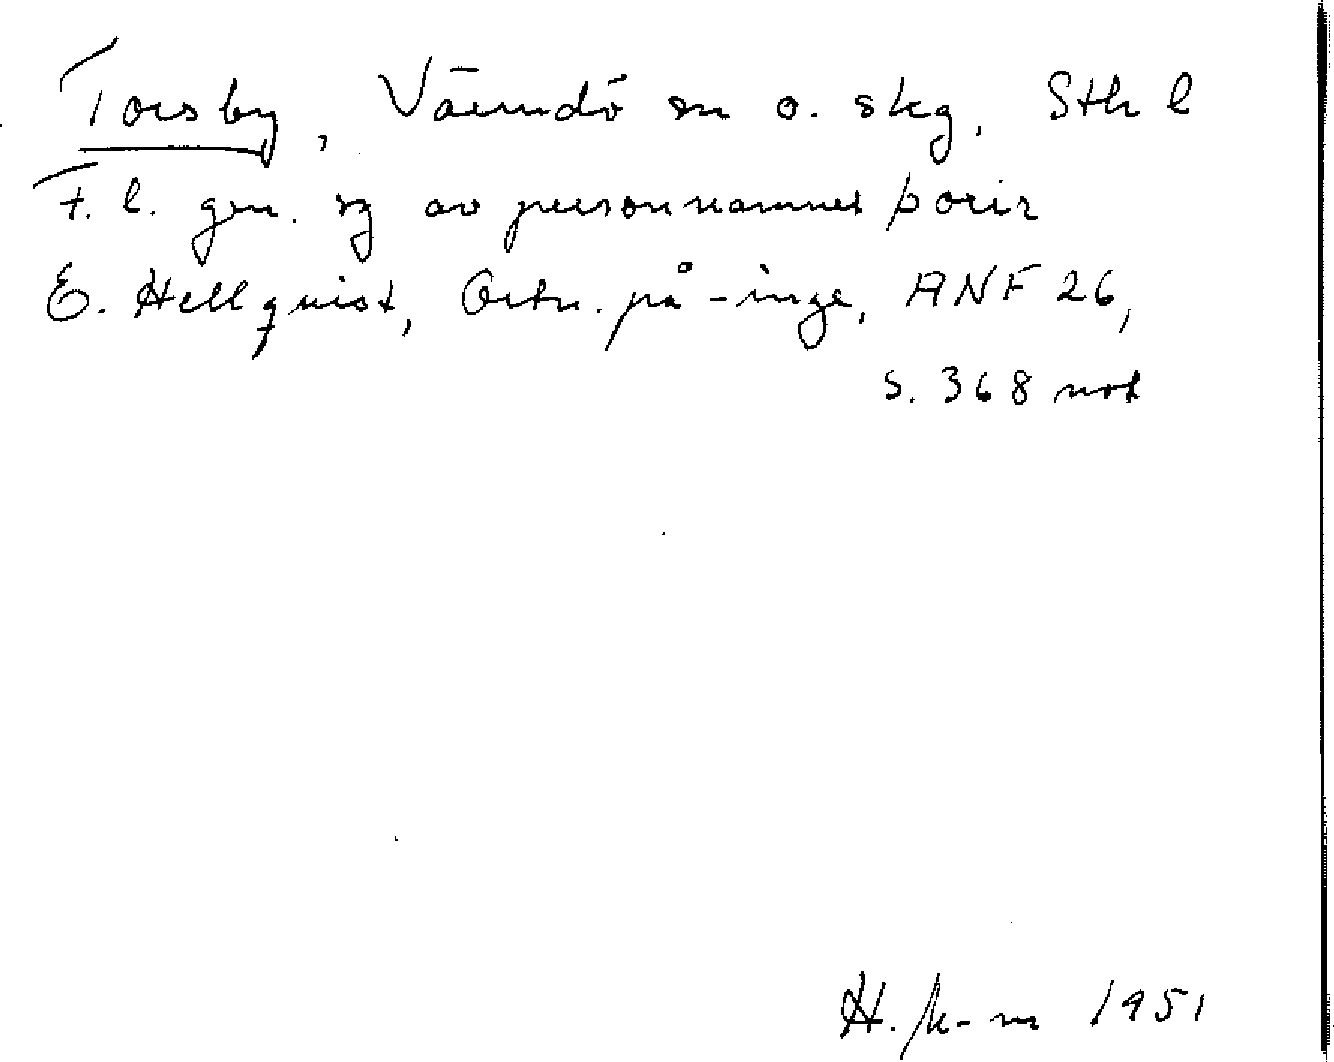 Torsby, Värmdö sn o. skg, Sth l
F. l. gen. sg av personnamnet þorir
E. Hellquist, Ortn. på -inge, ANF 26,
s. 368 not
H. 1951